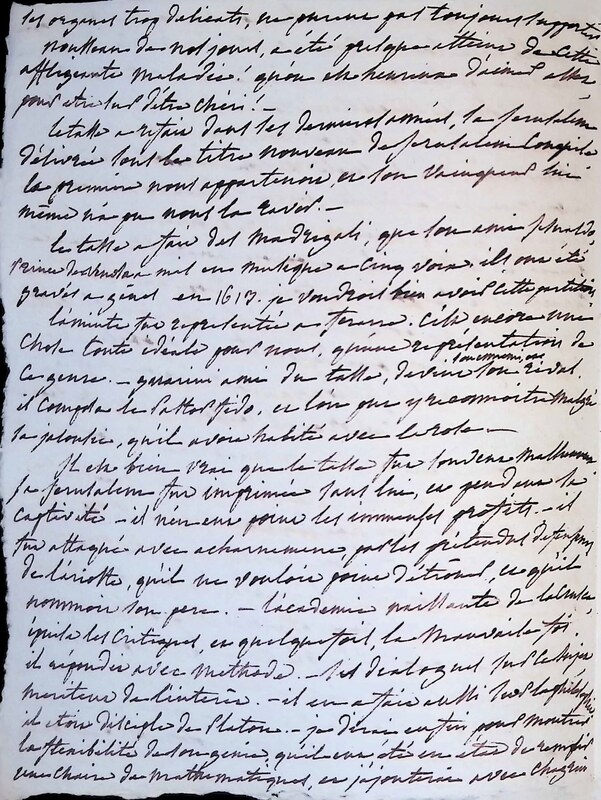 ses organes trop delicats, ne purent pas toujours supporter
rousseau de nos jours, a été presque atteint de cette
affligeante maladie! qu'on est heureux d'aimer assez
pour etre sur d'être chéri! -
le tasse a refait dans ses dernieres années, la Jerusalem
délivrée sous le titre nouveau de Jerusalem Conquise
la premiere nous appartenoit, et son vainqueur lui
même n'a pu nous la ravir. -
le tasse a fait des Madrigali, que son ami
Prince de mis en musique a cinq voix. ils ont été
gravés a gênes en 1613. je voudrois bien avoir cette partition
l'aminte fut representée a ferrare. C'est encore une
Chose toute idéale pour nous, qu'une représentation de
ce genre. - guarini ami du tasse, devint son rival.
il composa le Pastor fido, et l'on peut y reconnoitre malgré
sa jalousie, qu'il avoit habité avec la rose -
Il est bien vrai que le tasse fut souvent malheureux
sa Jerusalem fut imprimée sans lui, et pendant sa
captivité - il n'en eut point les immenses profits. - il
fut attaqué avec acharnement par les prétendus defenseurs
de l'arioste, qu'il ne vouloit point détrôner, et qu'il
nommoit son pere. - l'académie naissante de la Crusca
épuisa les Critiques, et quelquefois, la Mauvaise foi.
il répondit avec methode. - ses dialogues sur le
meritent de l'interêt. - il en a fait aussi sur la philosophie
il etoit disciple de Platon. - je dirai enfin pour montrer
la flexibilité de son genie, qu'il eut été en état de remplir
une chaire de mathematiques, et j'ajouterai avec chagrin